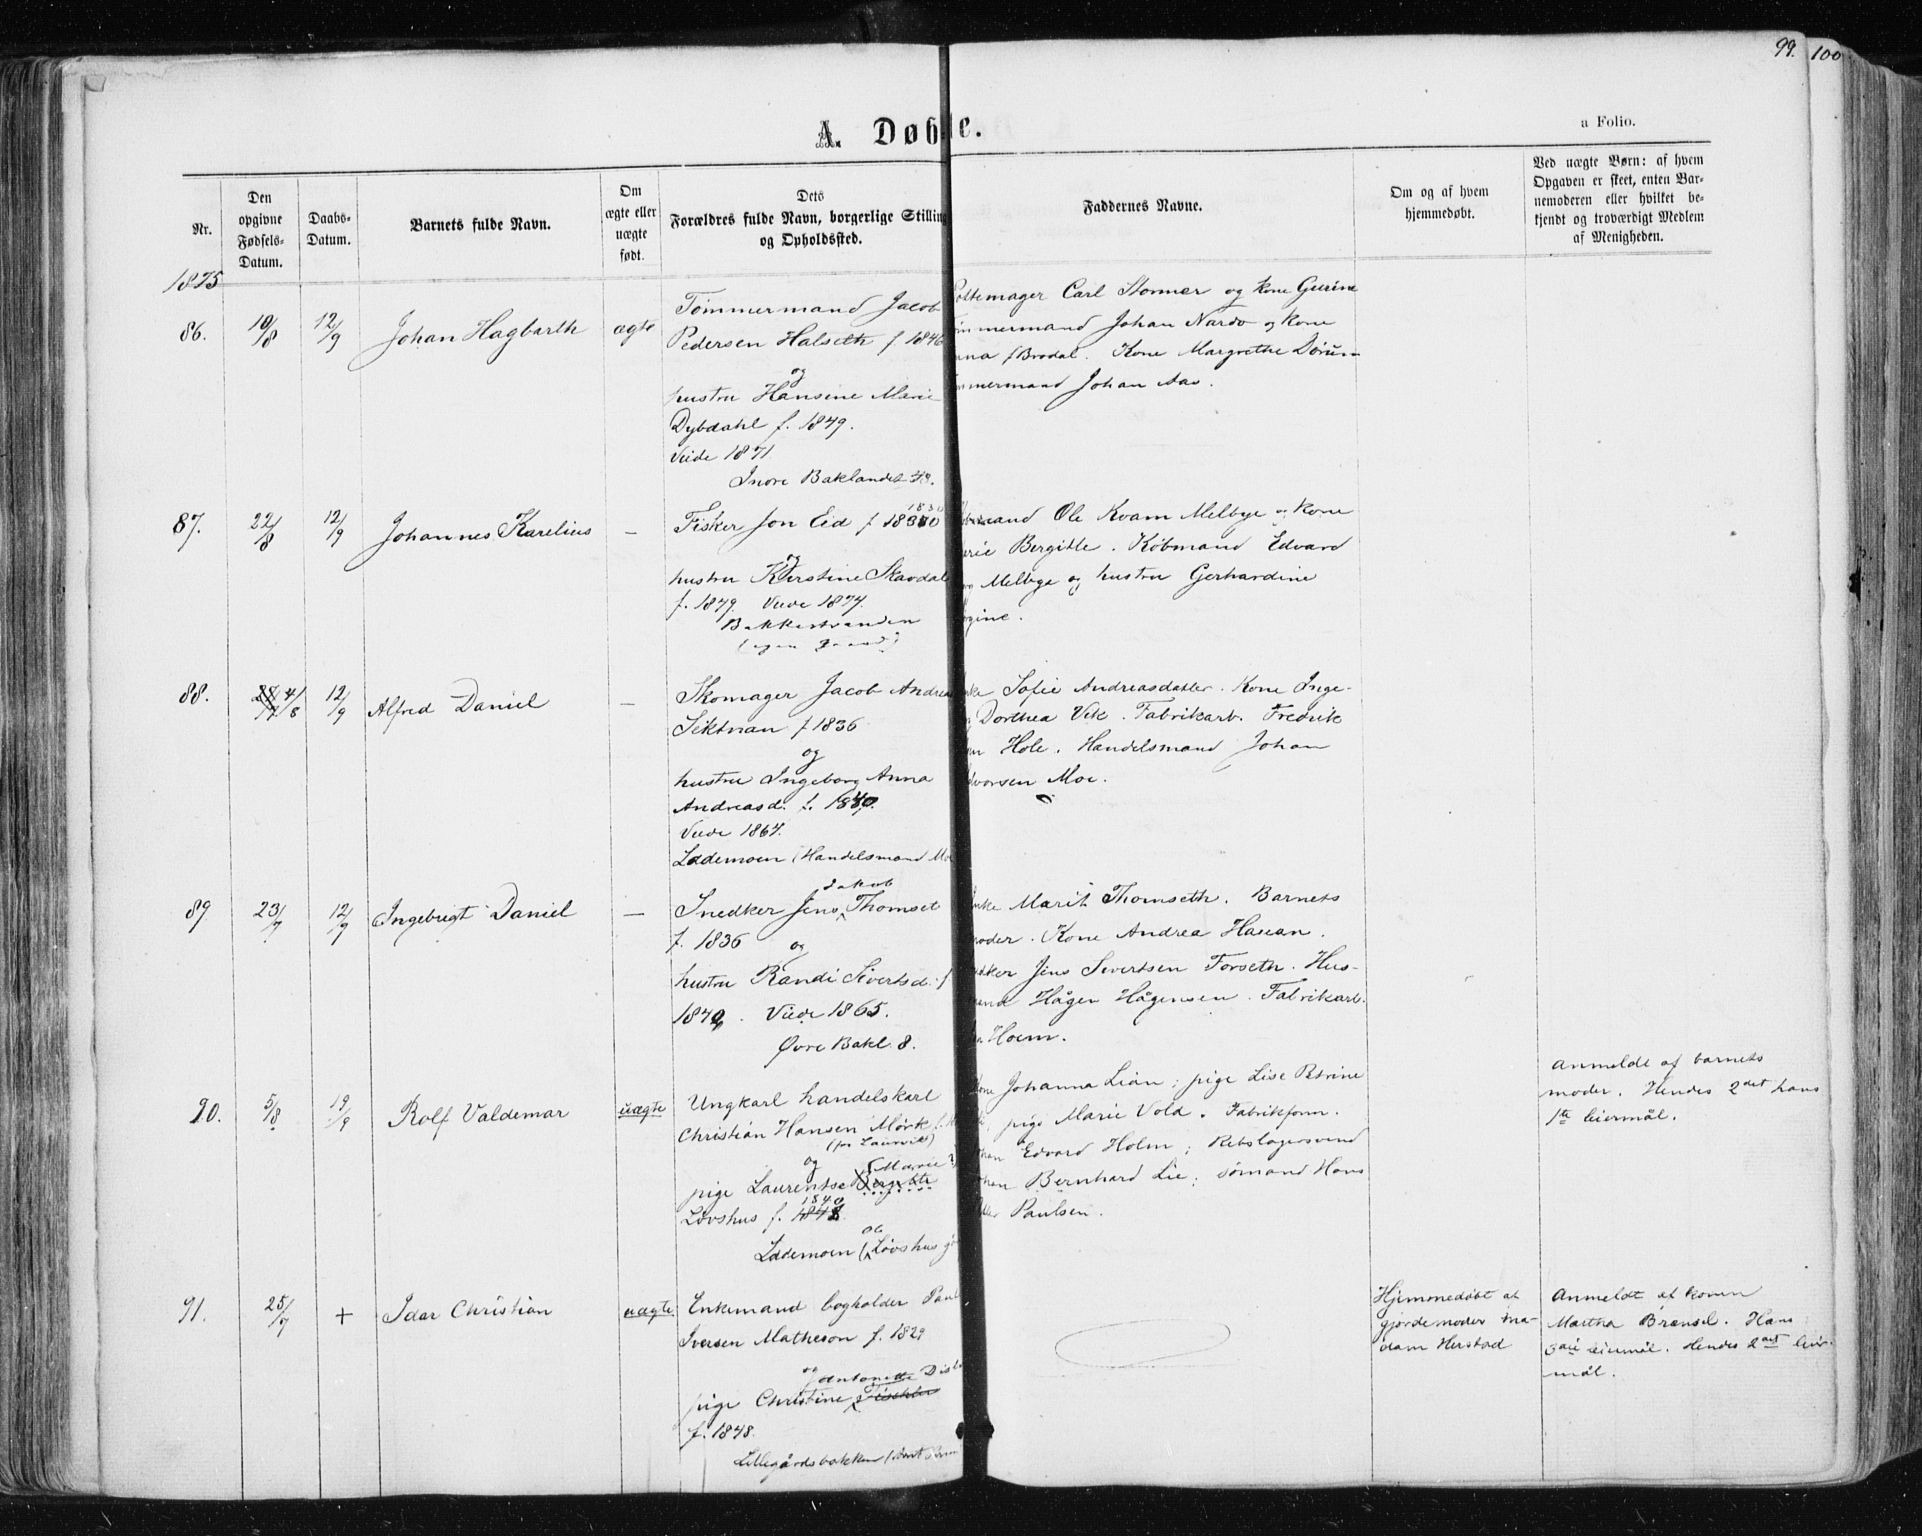 99. 100
A. Døbte.
a Folio.
Nr.
Den
opgivne
Fødsels-
Datum.
Daabs-
Datum.
Barnets fulde Navn.
Om
ægte eller
uægte
født.
Dets
Forældres fulde Navn, borgerlige Stilling
og Opholdssted.
Faddernes Navne.
Om og af hvem
hjemmedøbt.
Ved uægte Børn: af hvem
Opgaven er skeet, enten Bar-
nemoderen eller hvilket be-
kjendt og troværdigt Medlem
af Menigheden.
1875
86.
10/8
12/9
Johan Hagbarth
ægte
Tömmermand Jacob
Pedersen Halseth f 1846
og
hustru Hansine Marie
Dybdahl f. 1849.
Viede 1871.
Indre Baklandet
ottemager Carl Stormer og kone Gurine
mmermand Johan Nardo og kone
nna f Brodal. Kone Margrethe Dorum
mmermand Johan Aas.
87.
22/8
12/9
Johannes Karelius
—
1830
Fisker Jon Eid f
og
hustru Kirstine Skavdal
f. 1849. Viede 1874.
Bakkestranden
(egen gaard)
mand Ole Kvam Melbye og kone
erie Bergitte. Købmand Edvard
Melbye og hustru Gerhardine
gine.
88.
4/8
12/9
Alfred Daniel
—
Skomager Jacob Andreas
Siktnan f 1836
og
hustru Ingeborg Anna
Andreasd. f. 1840.
Viede 1864.
Lademoen (Handelsmand Mo
nke Sofie Andreasdatter. Kone Inge-
Dorthea Vik. Fabrikarb. Fredrik
en Hole. Handelsmand Johan
dvorsen Moe.
89
23/7
12/9
Ingebrigt Daniel
—
Jakob
Snedker Jens Thomset
f. 1836 og
hustru Randi Sivertsd. f
1840. Viede 1865.
Øvre Bakl. 8.
nke Marit Thomseth. Barnets
moder. Kone Andrea Hasean.
dker Jens Sivertsen Forseth. Hus-
mand Hågen Hågensen. Fabrikarb.
Hoem.
90.
5/8
19/9
Rolf Valdemar
uægte
Ungkarl handelskarl
Christian Hansen Mörk f.
(fra Laurvik)
og (Marie?)
pige Laurentse Bergitte
1840
Lövshus f. 1848.
Lademoen (ob Lövshus g
Kone Johanna Lian; pige Lise Petrine
pige Marie Vold. Fabrikform.
ohan Edvard Holm; Rebslagersvend
ohan Bernhard Lie; sömand Hans
Paulsen.
Anmeldt af barnets
moder. Hendes 2det hans
1te leiermål.
91.
25/7
+
Idar Christian
uægte
Enkemand bogholder Paul
Iversen Matheson f. 1829
og
Antonette Dist
pige Christine
f. 1848.
Lillegårdsbakken
Hjemmedøbt af
gjordemoder ma-
dam Herstad
Anmeldt af konen
Martha Brænsel. Hans
3die leiermål. Hendes 2det leier-
mål.